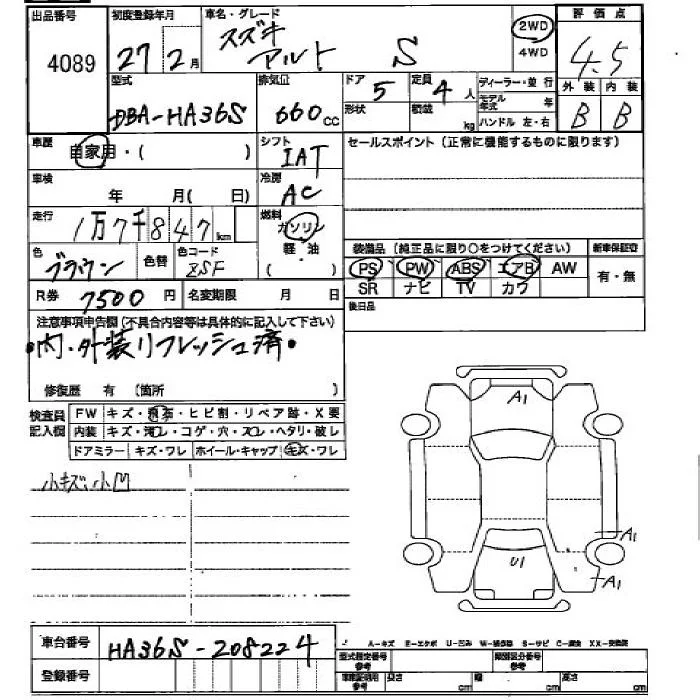 出品番号 初度登録年月 車名・グレード 評価点
4089 27年 2月 スズキ アルト S 2WD 4WD 4.5
外装 内装
B B
型式 排気量 ドア 定員 ディーラー・並行
DBA-HA36S 660cc 5 4人 モデル年式 年
形状 積載 kg ハンドル 左・右
車歴 シフト セールスポイント (正常に機能するものに限ります)
自家用・( ) IAT
車検 冷房
年 月( 日) AC
走行 燃料
1万7千847km ガソリン
軽油
( )
色 色替 色コード 装備品 (純正品に限り○をつけてください) 新車保証書
ブラウン ZSF PS PW ABS エアB AW 有・無
SR ナビ TV カワ
R券 7500円 名変期限 月 日 後日品
注意事項申告欄(不具合内容等は具体的に記入して下さい)
・内・外装リフレッシュ済・
修復歴 有 (箇所 )
検査員記入欄 FW キズ・飛石・ヒビ割・リペア跡・X要
内装 キズ・汚レ・コゲ・穴・スレ・ヘタリ・破レ
ドアミラー キズ・ワレ ホイール・キャップ キズ・ワレ
小キズ、小凹
A1
A1
U1
A1
車台番号 HA36S-208224
登録番号
A-キズ E-エクボ U-凹ミ W-補修跡 S-サビ C-腐食 XX-交換済
型式指定番号 参考 類別区分番号 参考
車庫証明用 参考 長さ cm 幅 cm 高さ cm